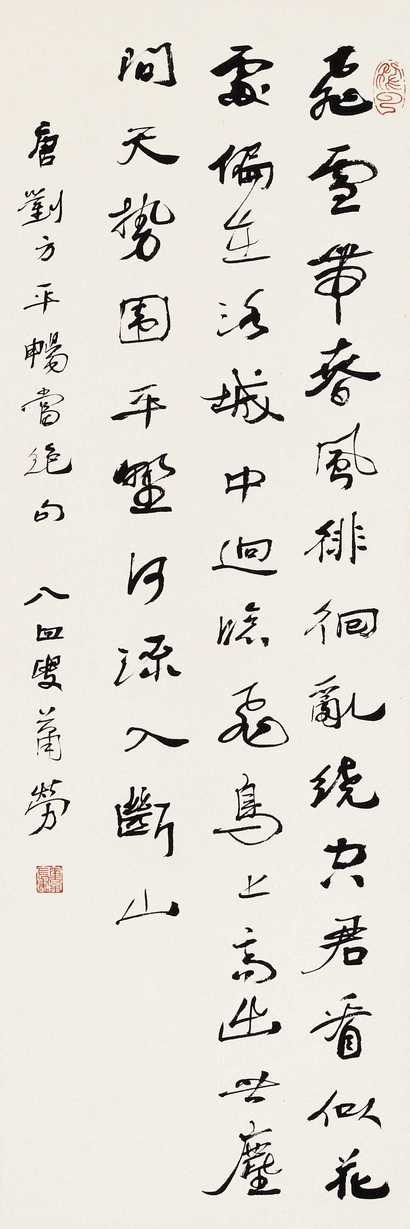 飛雪帶春風徘徊亂繞空君看似花
處偏在洛城中迥臨飛鳥上高出世塵
間天势围平野河流入斷山
唐劉方平暢當绝句 八四叟蕭勞